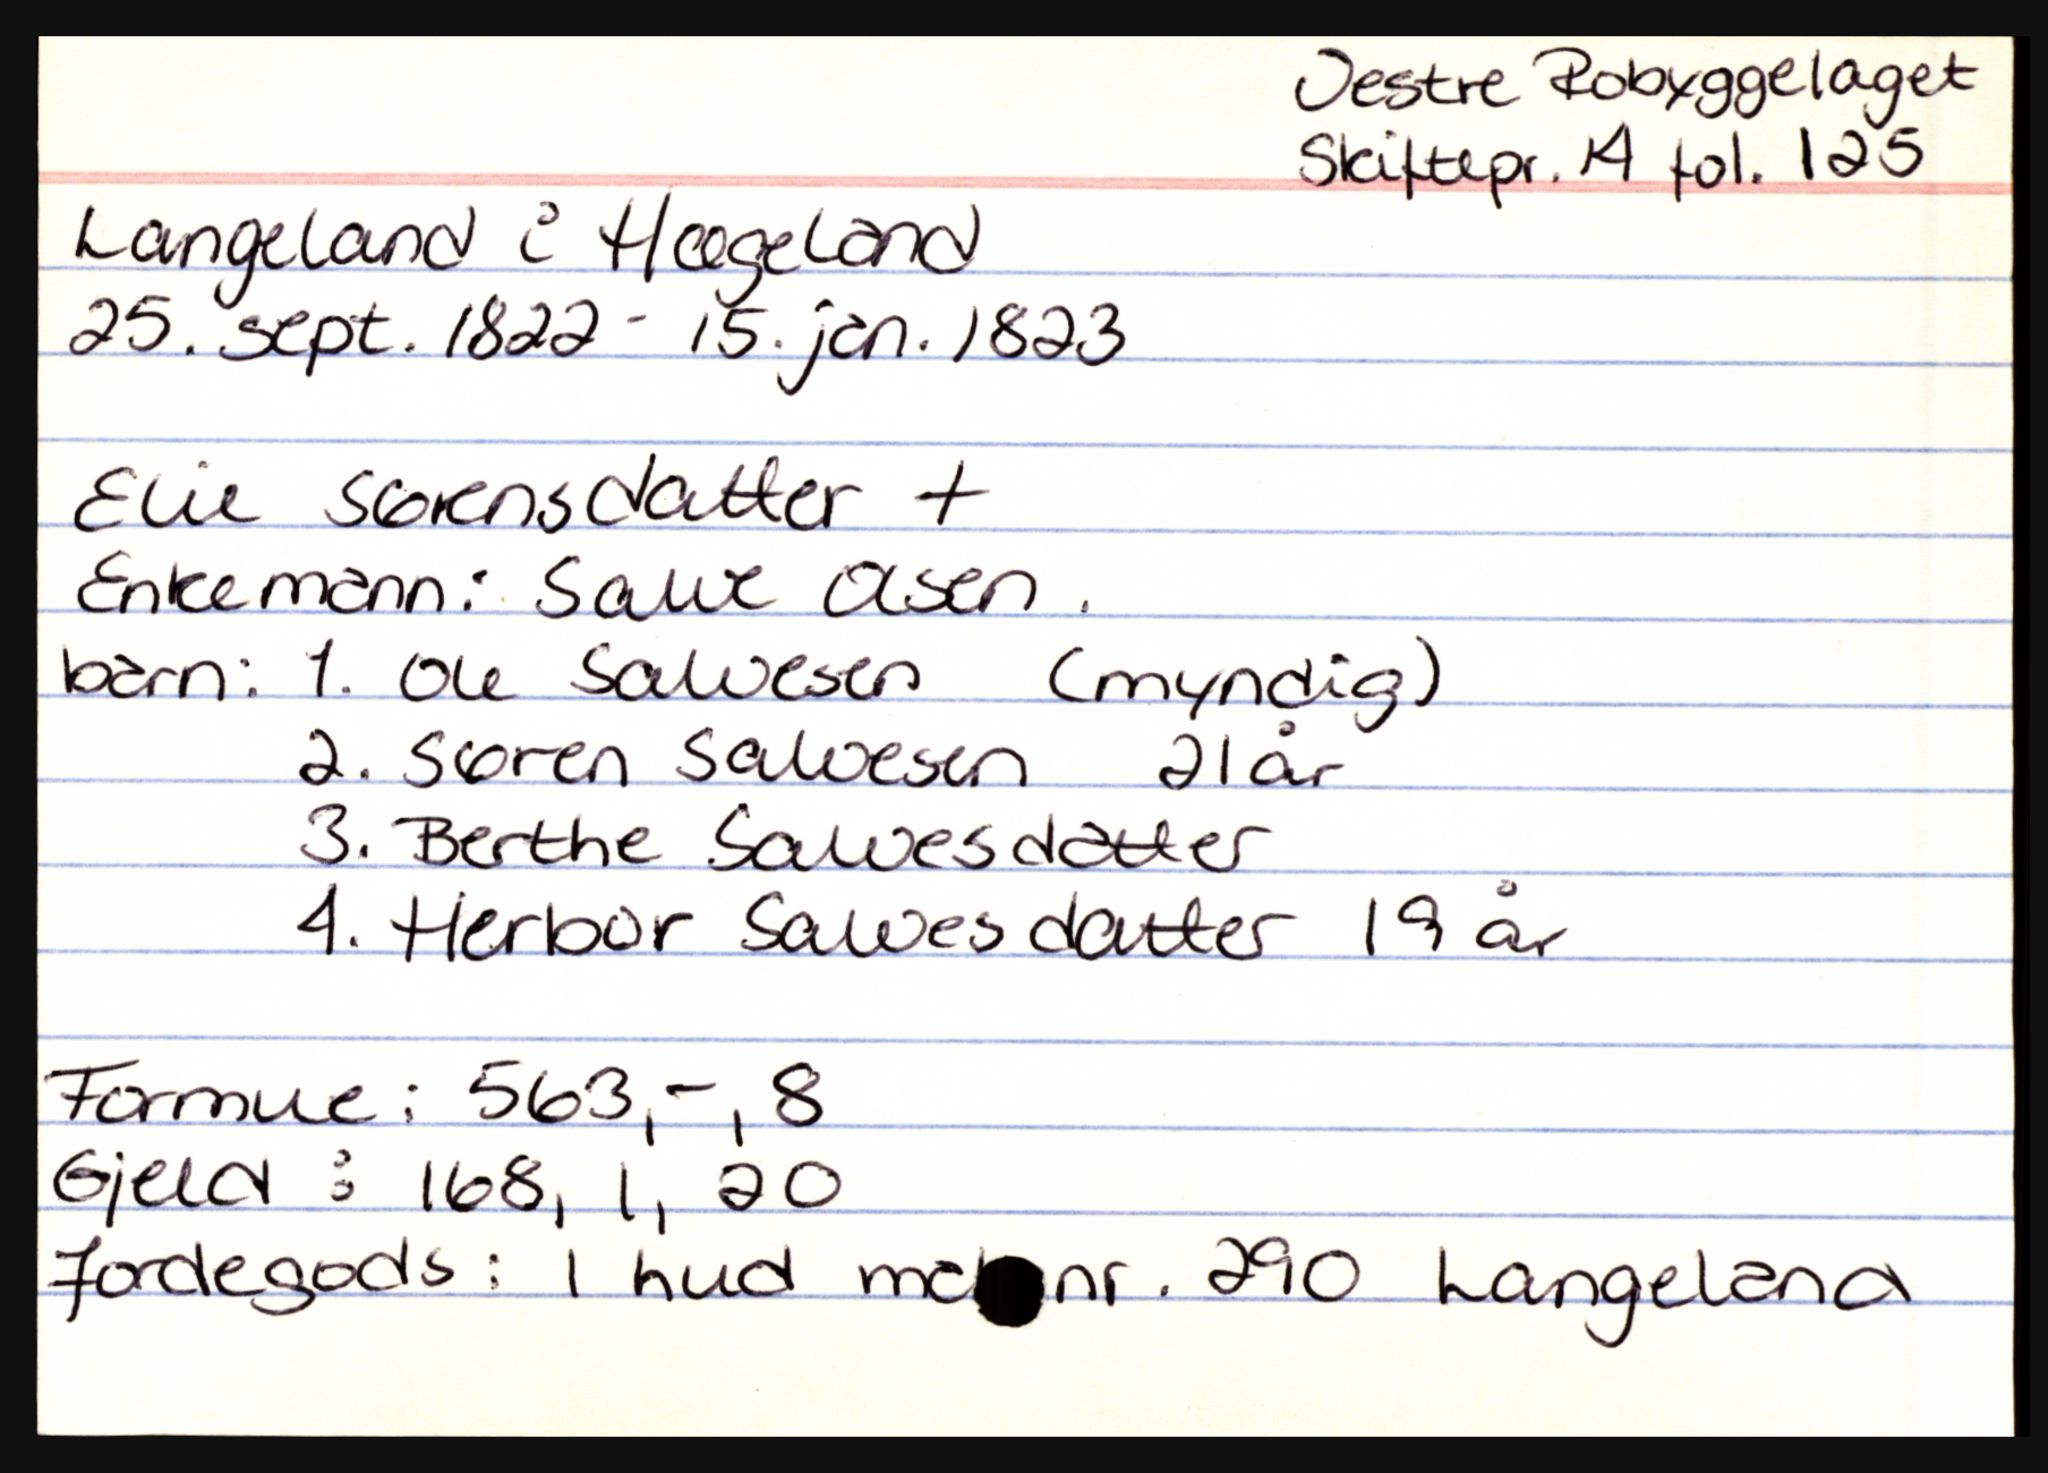 Vestre Robyggelaget
Skiftepr. 14 fol. 125
Langeland i Hægeland
25. sept. 1822 - 15. jan. 1823
Elie Sørensdatter +
Enkemann: Salve Olsen.
barn: 1. Ole Salvesen (myndig)
2. Søren Salvesen 21 år
3. Berthe Salvesdatter
4. Herbor Salvesdatter 19 år
Formue: 563,-, 8
Gjeld : 168, 1, 20
Jordegods: 1 hud nr. 290 Langeland